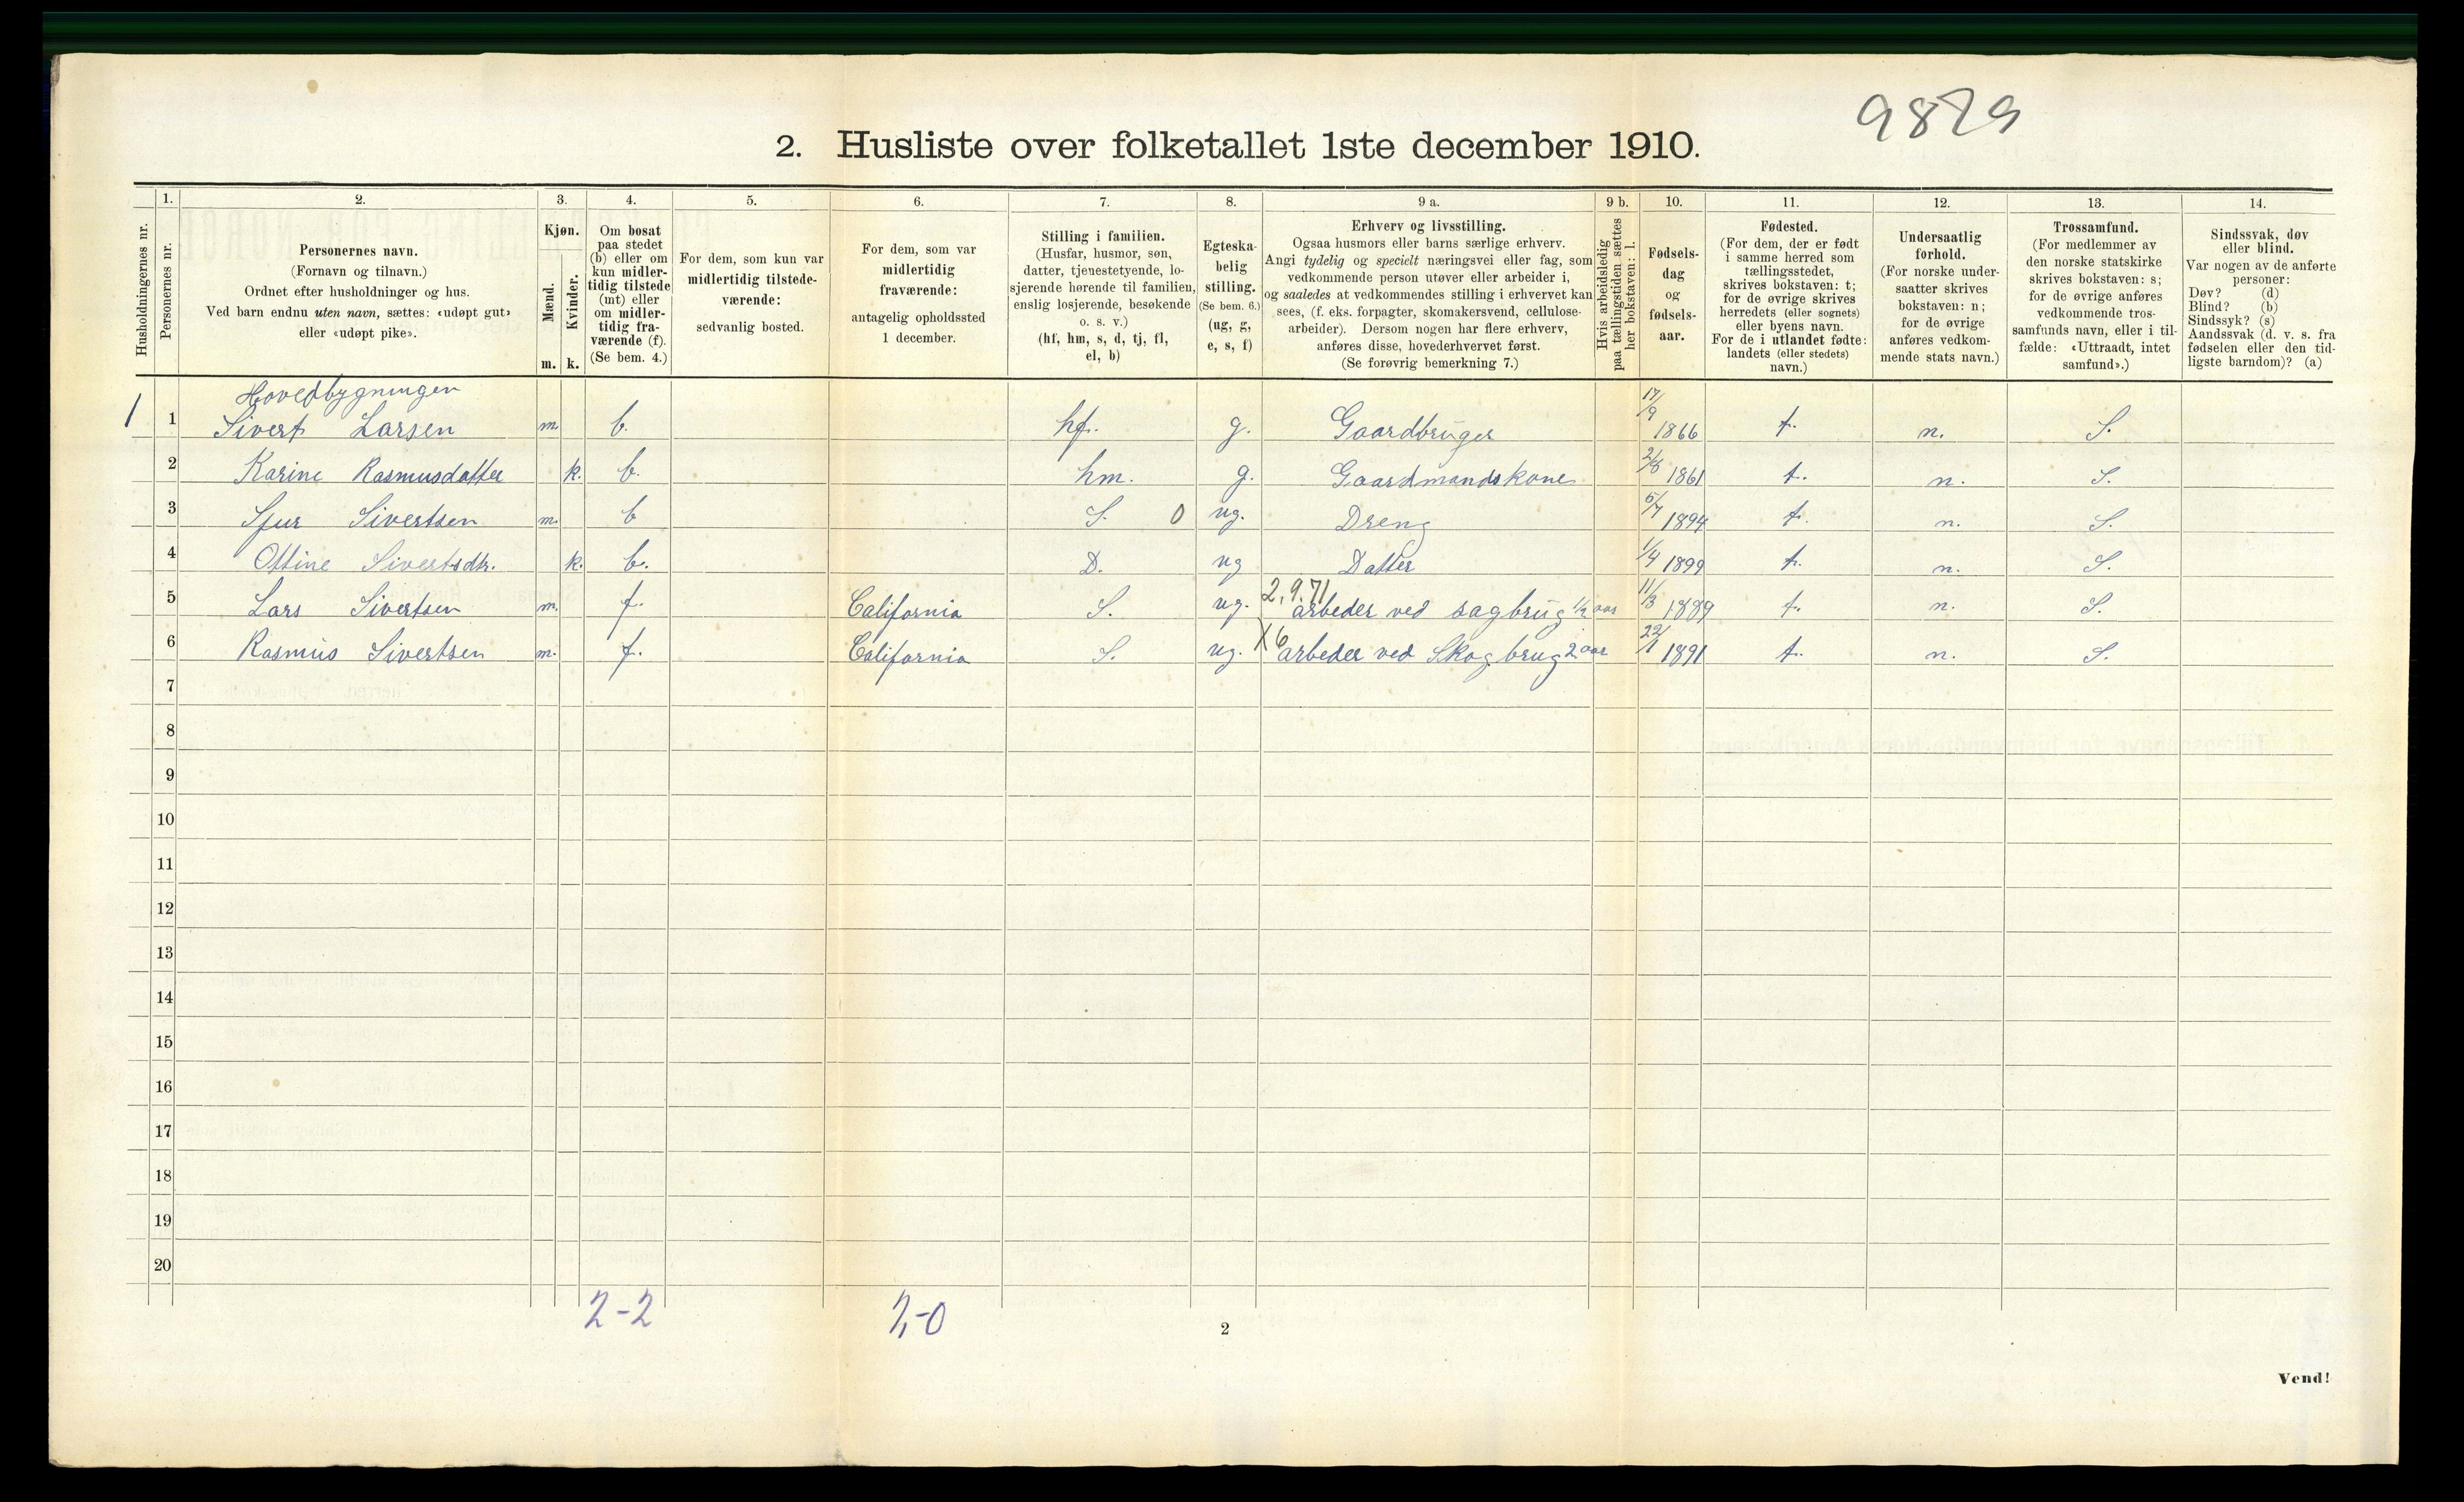 9829
2. Husliste over folketallet 1ste december 1910.
Husholdningernes nr.
1. Personernes nr.
2. Personernes navn. (Fornavn og tilnavn.) Ordnet efter husholdninger og hus. Ved barn endnu uten navn, sættes: «udøpt gut» eller «udøpt pike».
3. Kjøn. Mænd. m. Kvinder. k.
4. Om bosat paa stedet (b) eller om kun midlertidig tilstede (mt) eller om midlertidig fraværende (f). (Se bem. 4.)
5. For dem, som kun var midlertidig tilstedeværende: sedvanlig bosted.
6. For dem, som var midlertidig fraværende: antagelig opholdssted 1 december.
7. Stilling i familien. (Husfar, husmor, søn, datter, tjenestetyende, losjerende hørende til familien, enslig losjerende, besøkende o. s. v.) (hf, hm, s, d, tj, fl, el, b)
8. Egteskabelig stilling. (Se bem. 6.) (ug, g, e, s, f)
9 a. Erhverv og livsstilling. Ogsaa husmors eller barns særlige erhverv. Angi tydelig og specielt næringsvei eller fag, som vedkommende person utøver eller arbeider i, og saaledes at vedkommendes stilling i erhvervet kan sees, (f. eks. forpagter, skomakersvend, cellulosearbeider). Dersom nogen har flere erhverv, anføres disse, hovederhvervet først. (Se forøvrig bemerkning 7.)
9 b. Hvis arbeidsledig paa tællingstiden sættes her bokstaven: l.
10. Fødselsdag og fødselsaar.
11. Fødested. (For dem, der er født i samme herred som tællingsstedet, skrives bokstaven: t; for de øvrige skrives herredets (eller sognets) eller byens navn. For de i utlandet fødte: landets (eller stedets) navn.)
12. Undersaatlig forhold. (For norske undersaatter skrives bokstaven: n; for de øvrige anføres vedkommende stats navn.)
13. Trossamfund. (For medlemmer av den norske statskirke skrives bokstaven: s; for de øvrige anføres vedkommende trossamfunds navn, eller i tilfælde: «Uttraadt, intet samfund».)
14. Sindssvak, døv eller blind. Var nogen av de anførte personer: Døv? (d) Blind? (b) Sindssyk? (s) Aandssvak (d. v. s. fra fødselen eller den tidligste barndom)? (a)
Hovedbygningen
1 1 Sivert Larsen m. b. hf. g. Gaardbruger 17/9 1866 t. n. S.
2 Karine Rasmusdatter k. b. hm. g. Gaardmandskone 2/8 1861 t. n. S.
3 Sjur Sivertsen m. b S. 0 ug. Dreng 5/7 1894 t. n. S.
4 Ottine Sivertsdtr. k. b. D. ug Datter 1/4 1899 t. n. S.
5 Lars Sivertsen m. f. California S. ug. 2.9.71 arbeder ved sagbrug 1/2 aar 11/3 1889 t. n. S.
6 Rasmus Sivertsen m. f. California S. ug. X6 arbeder ved Skogbrug 2 aar 22/1 1891 t. n. S.
7
8
9
10
11
12
13
14
15
16
17
18
19
20
2-2 2-0
2
Vend!